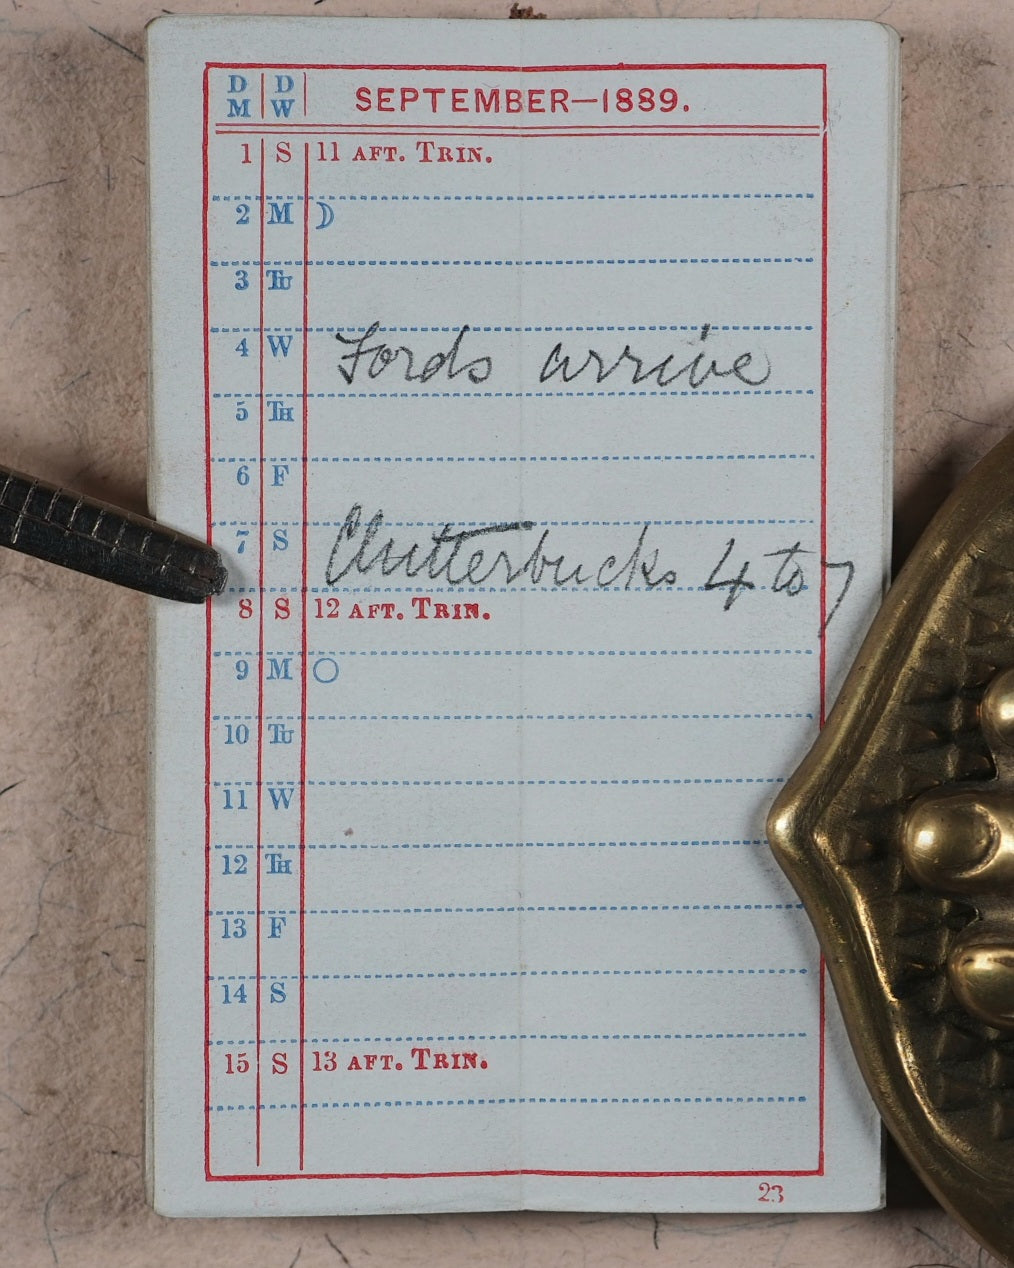 D M D W SEPTEMBER—1889.
1 S 11 AFT. TRIN.
2 M ☽
3 TU
4 W Fords arrive
5 TH
6 F
7 S Clutterbucks 4 to 7
8 S 12 AFT. TRIN.
9 M ○
10 TU
11 W
12 TH
13 F
14 S
15 S 13 AFT. TRIN.
23